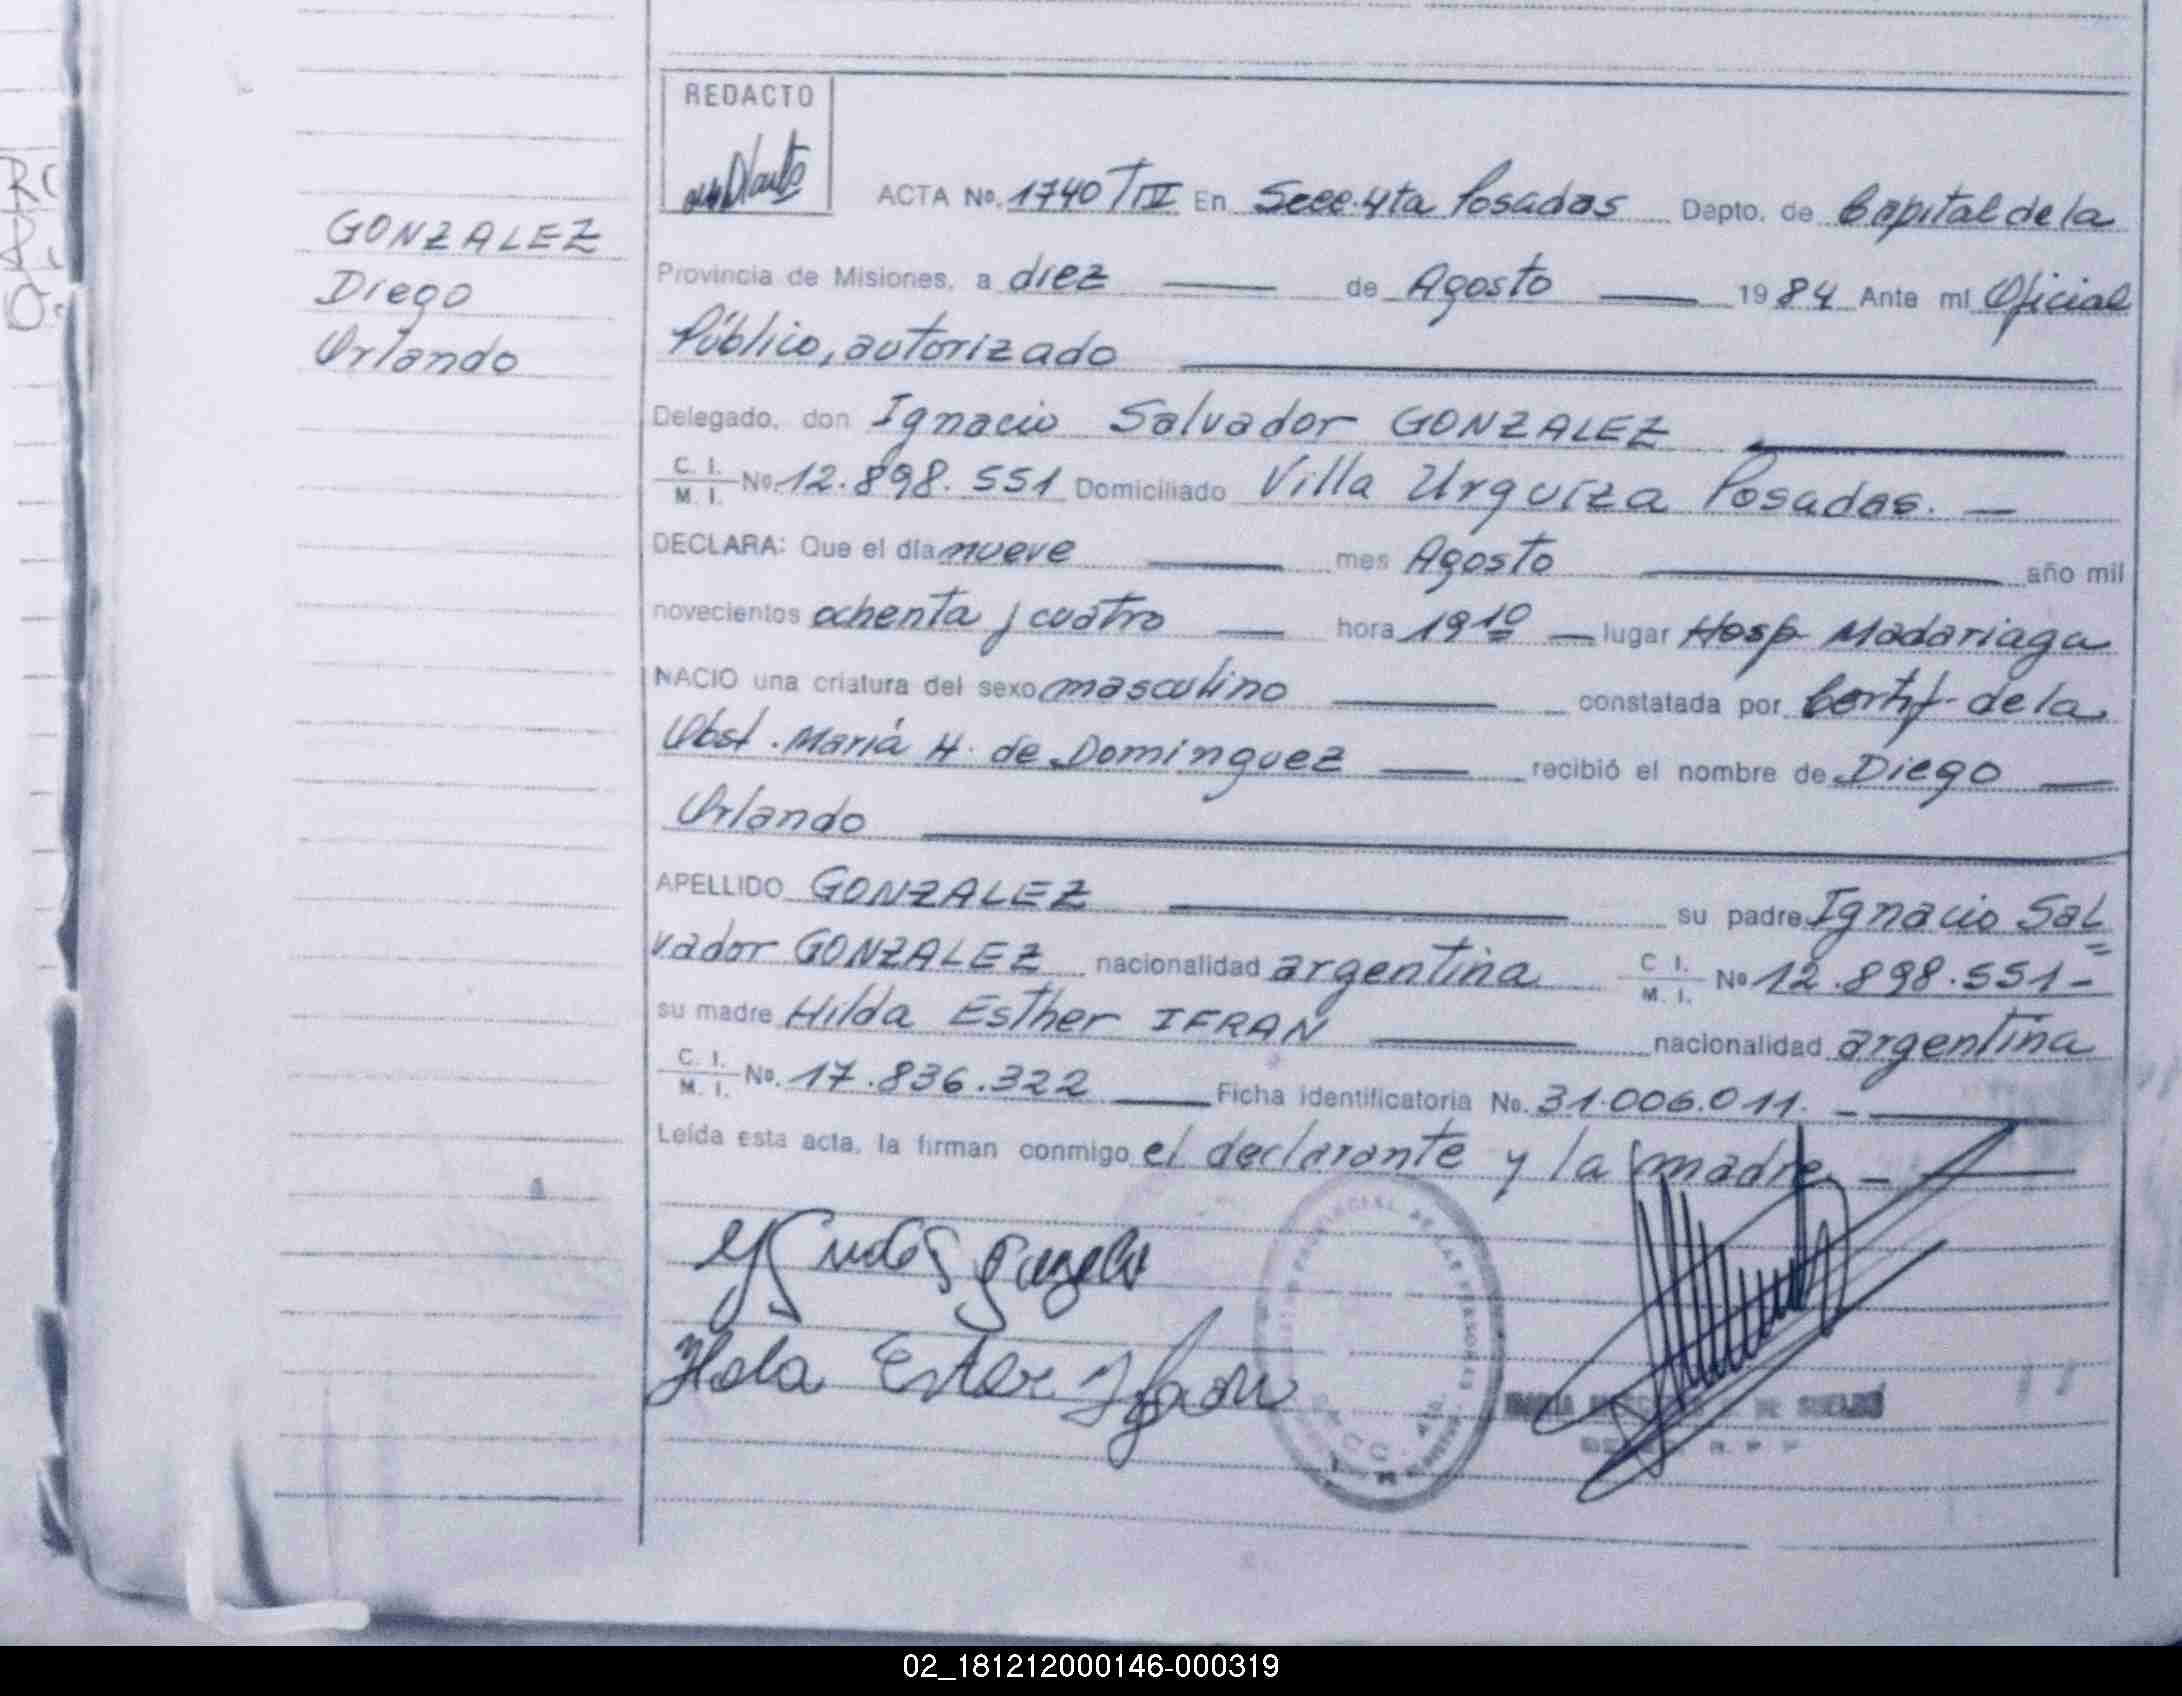 REDACTO
GONZALEZ
Diego
Orlando
ACTA No. 1740 TIV En Secc. 4ta Posadas Dapto. de Capital de la
Provincia de Misiones, a diez de Agosto 1984 Ante mi Oficial
Público, autorizado
Delegado, don Ignacio Salvador GONZALEZ
C. I.
M. I. No. 12.898.551 Domiciliado Villa Urquiza Posadas. —
DECLARA: Que el día nueve mes Agosto año mil
novecientos ochenta y cuatro hora 19 10 — lugar Hosp Madariaga
NACIO una criatura del sexo masculino constatada por Certif. de la
Obst. María H. de Dominguez recibió el nombre de Diego
Orlando
APELLIDO GONZALEZ su padre Ignacio Sal
vador GONZALEZ nacionalidad argentina C I. M. I. No 12.898.551-
su madre Hilda Esther IFRAN nacionalidad argentina
C. I.
M. I. No. 17.836.322 Ficha identificatoria No. 31.006.011.
Leída esta acta, la firman conmigo el declarante y la madre
PROVINCIAL DE LAS PERSONAS
DE SUELDO
02_181212000146-000319